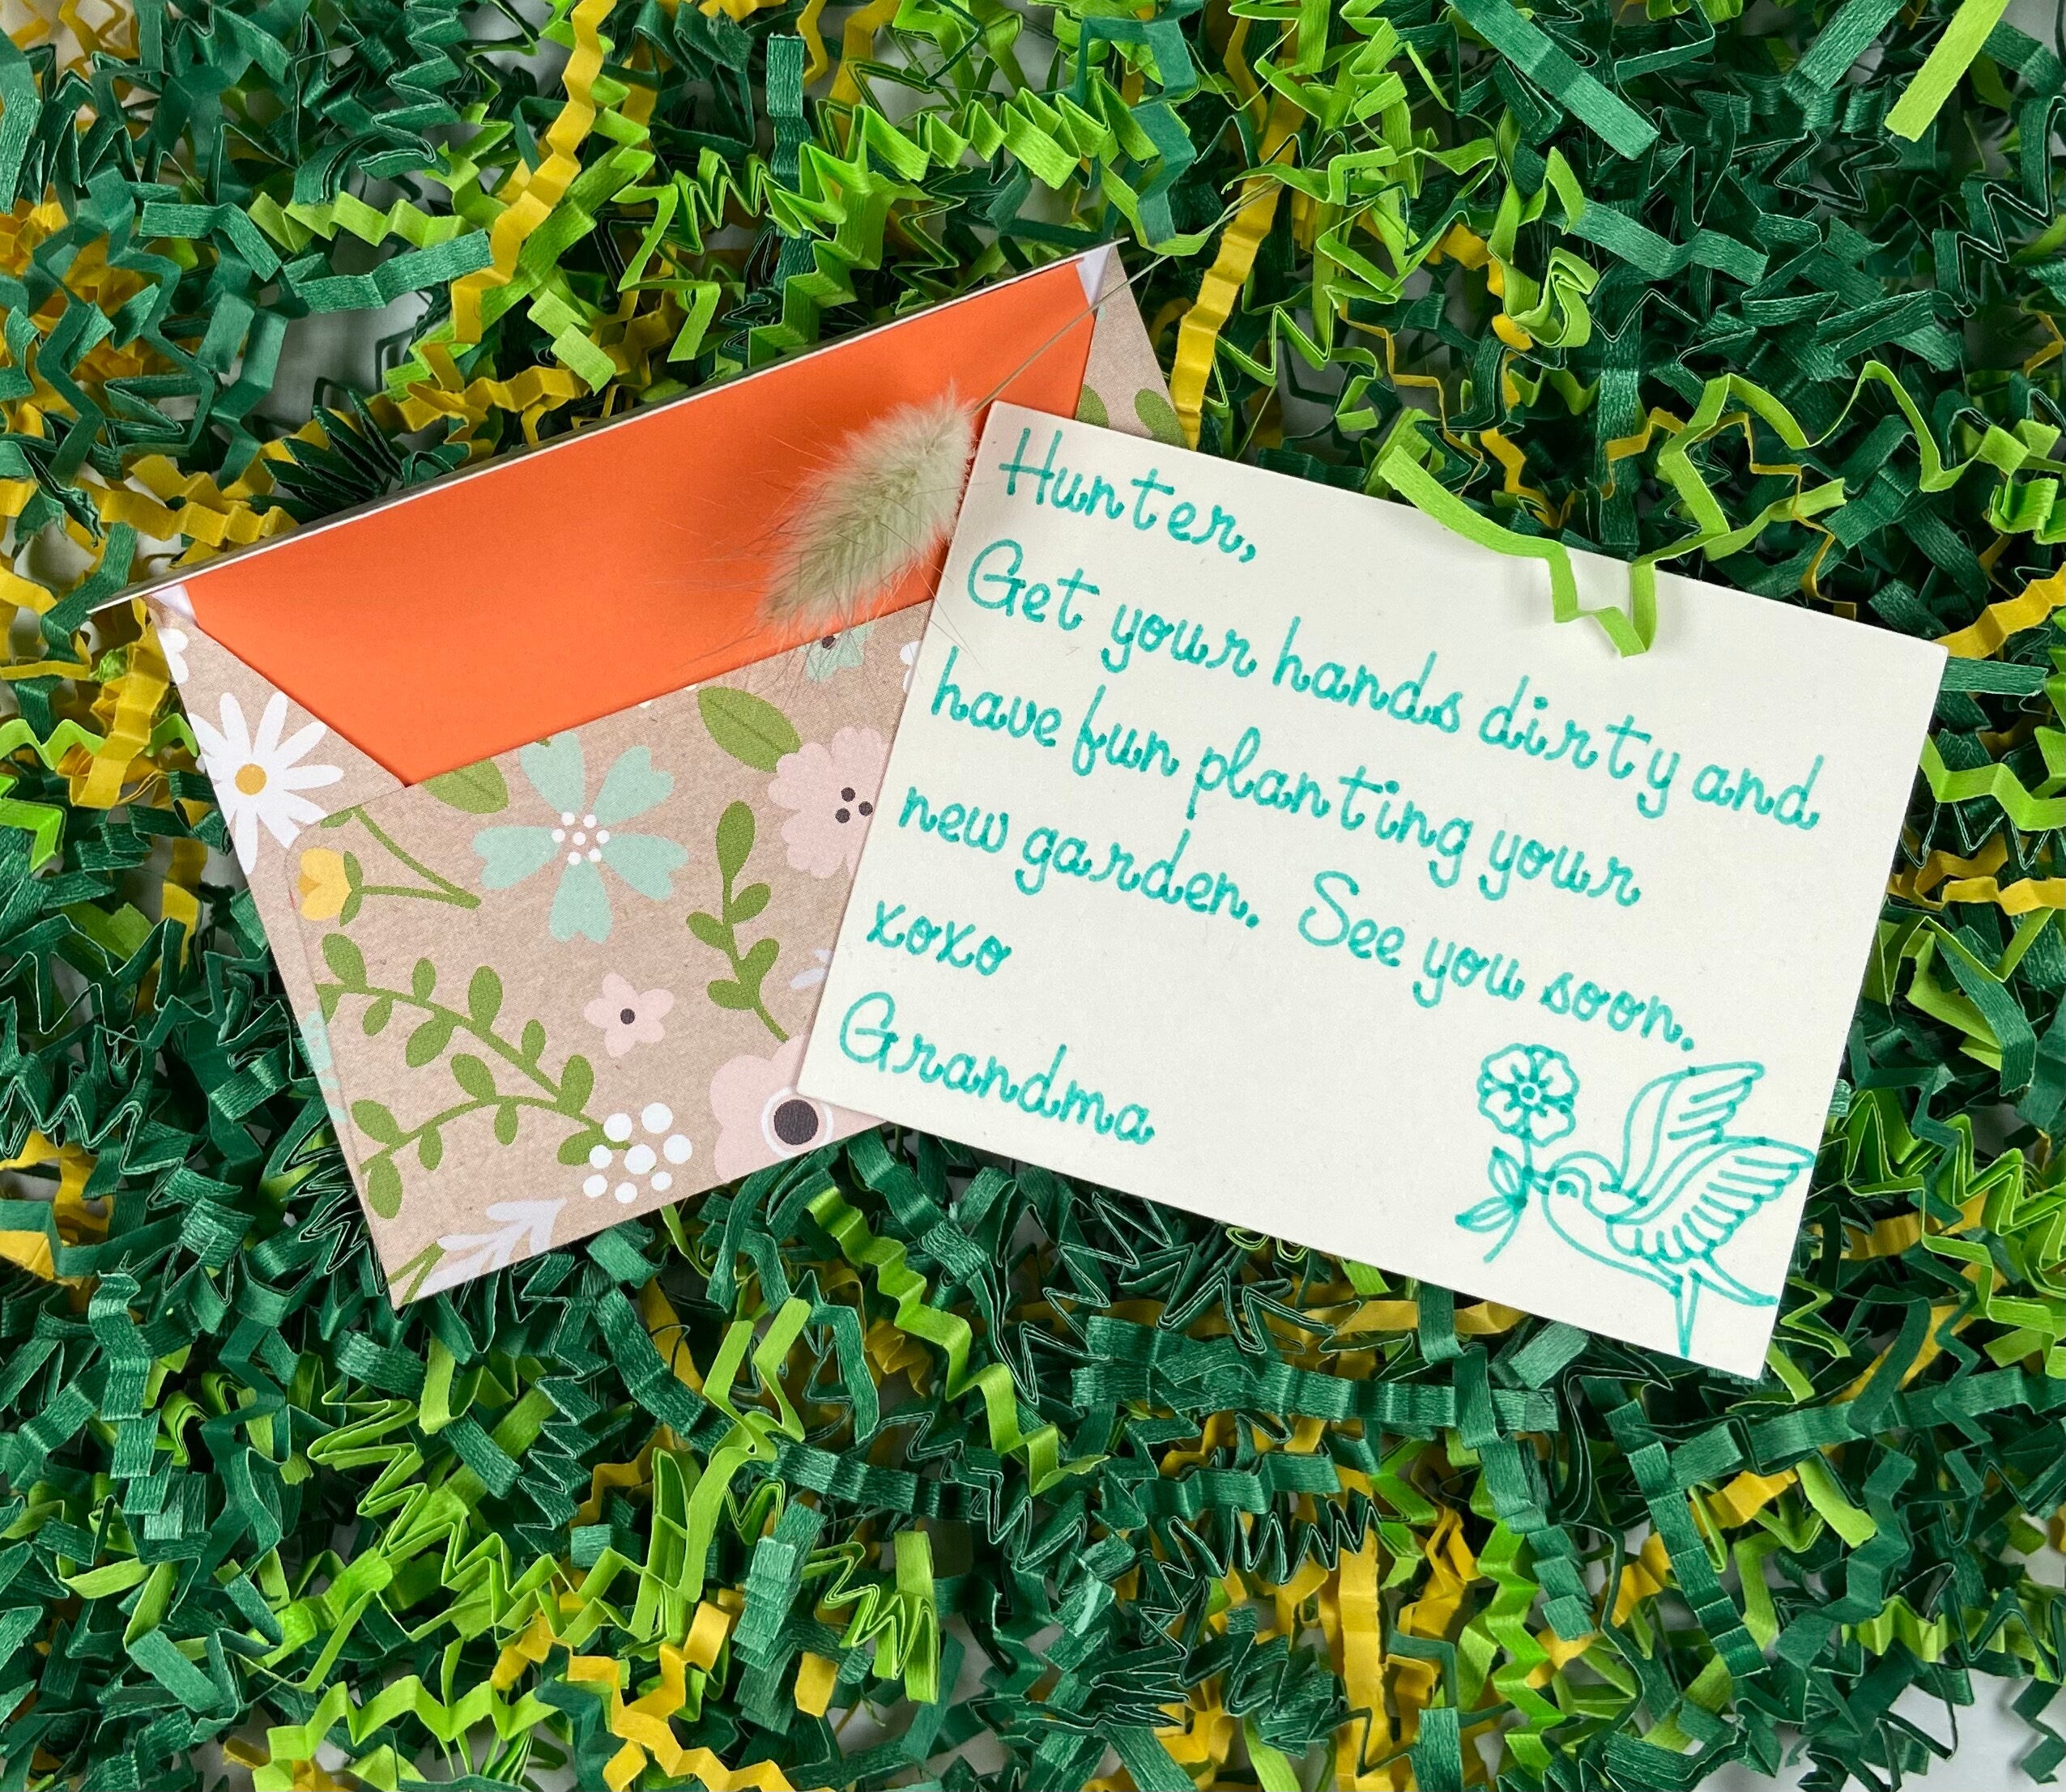 Hunter,
Get your hands dirty and
have fun planting your
new garden. See you soon.
xoxo
Grandma